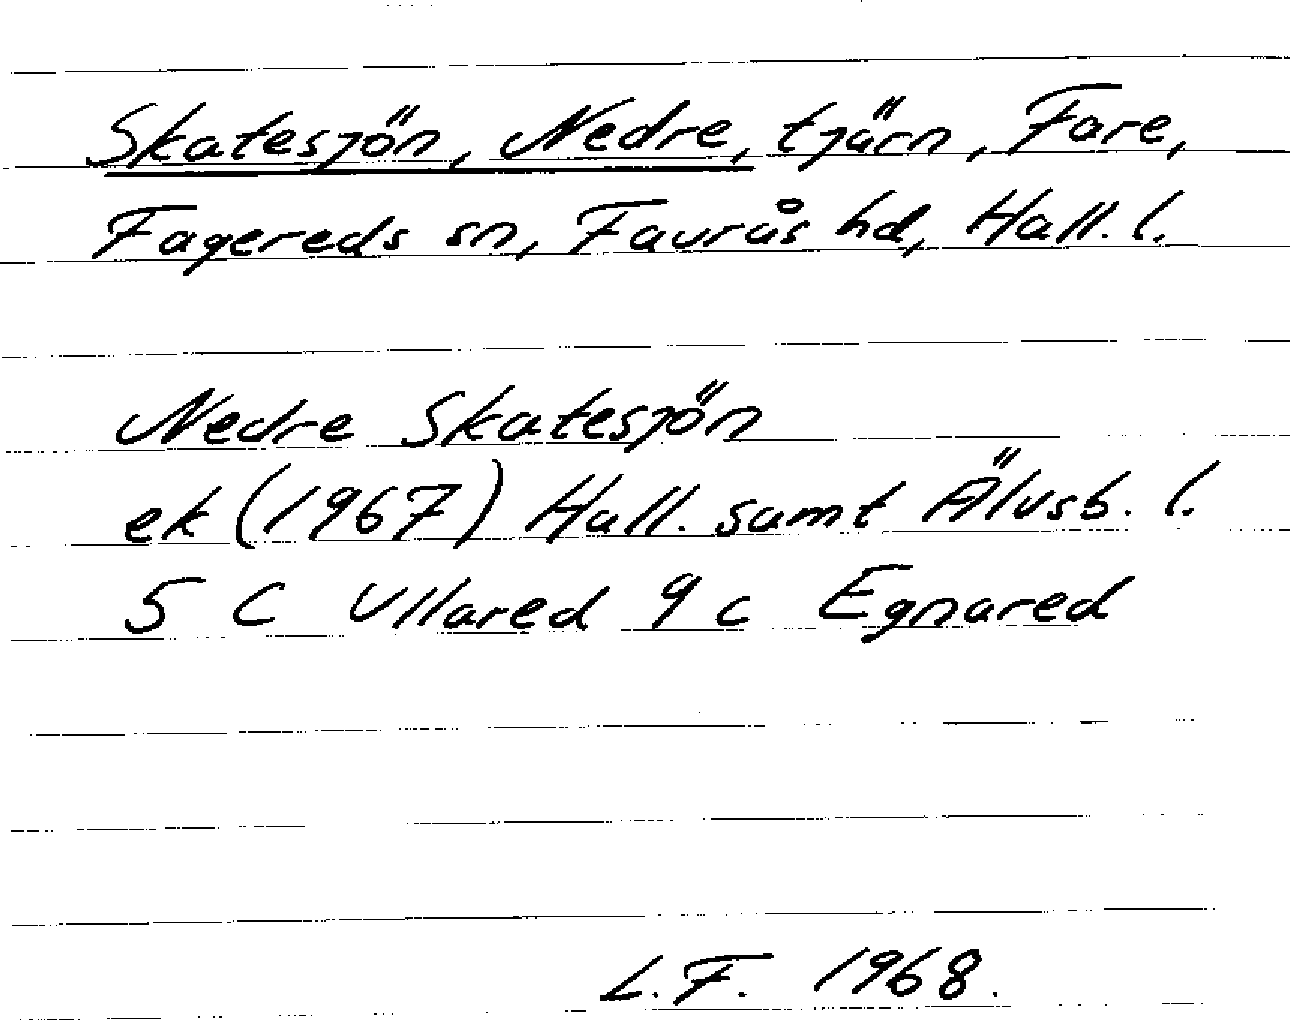 Skatesjön, Nedre, tjärn, Fare,
Fagereds sn, Faurås hd, Hall. l.
Nedre Skatesjön
ek (1967) Hall. samt Älvsb. l.
5 C Ullared 9 c Egnared
L.F. 1968.